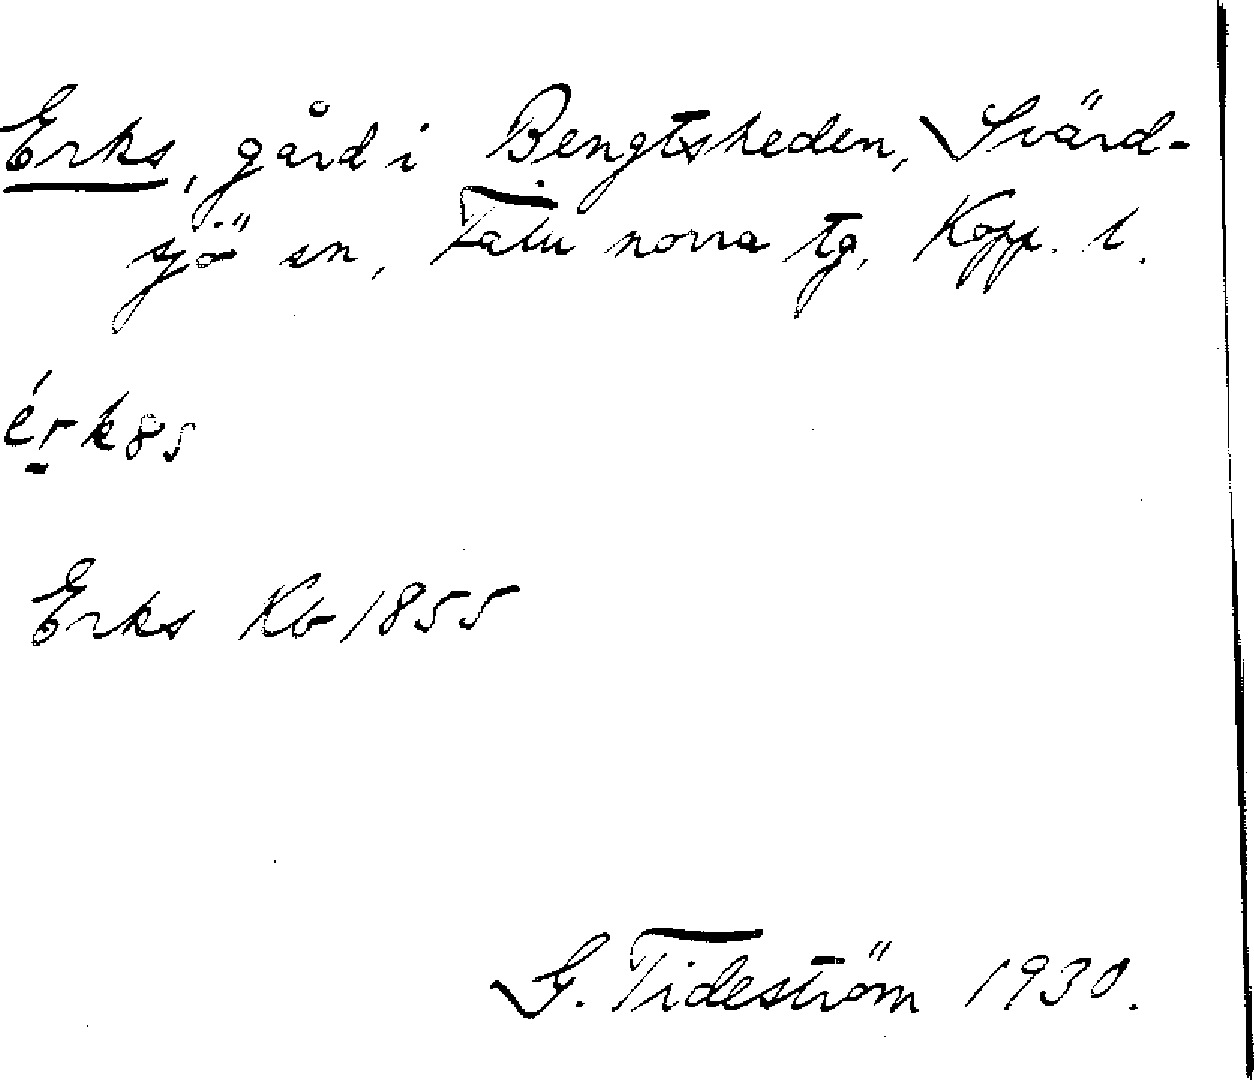 Erks, gård i Bengtsheden, Svärd-
sjö sn, Falu norra tg, Kopp. l.
érk8s
Erks Kb 1855
G. Tideström 1930.